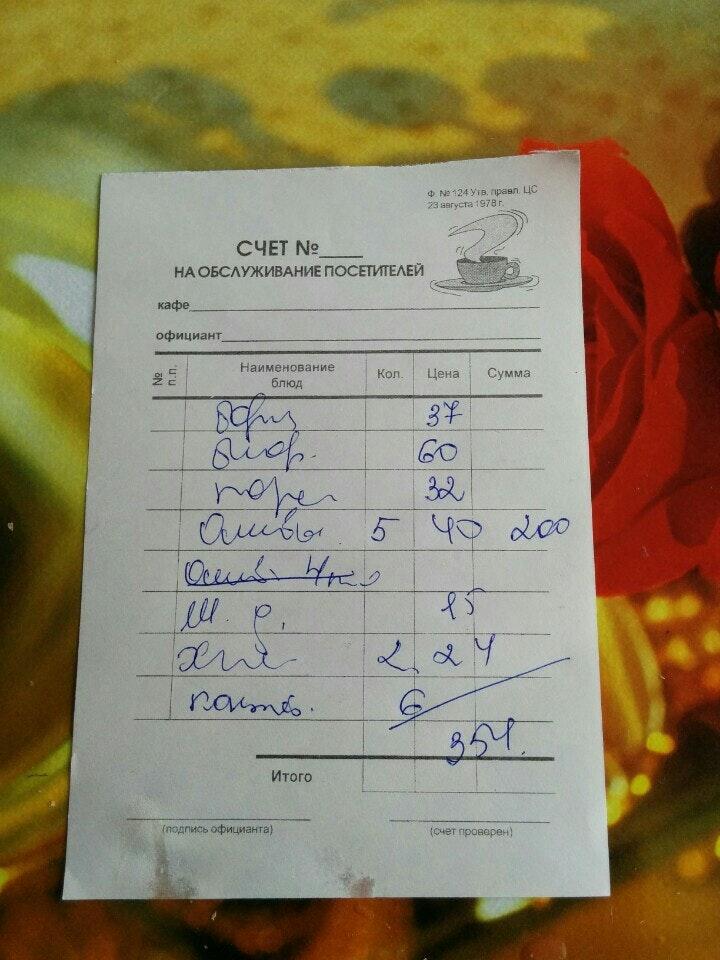 Ф. № 124 Утв. правл. ЦС
23 августа 1978 г.
СЧЕТ №____
НА ОБСЛУЖИВАНИЕ ПОСЕТИТЕЛЕЙ
кафе
официант
№ п.п. Наименование блюд Кол. Цена Сумма
37
60
32
Оливы 5 40 200
Ш. д. 15
2 2 4
6
354.
Итого
(подпись официанта) (счет проверен)